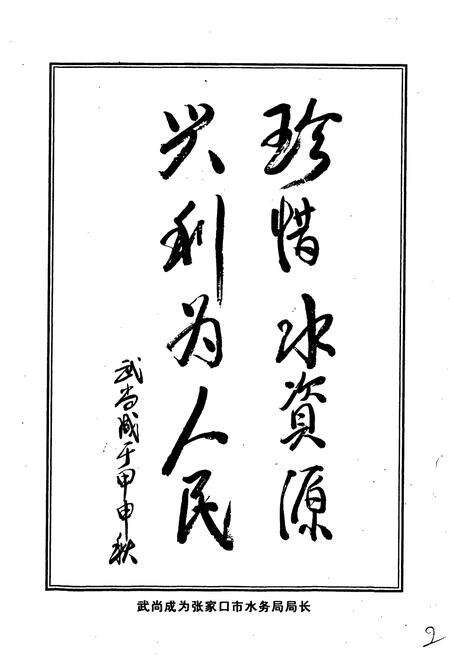 珍惜水資源
兴利为人民
武尚成于甲申秋
武尚成为张家口市水务局局长
2